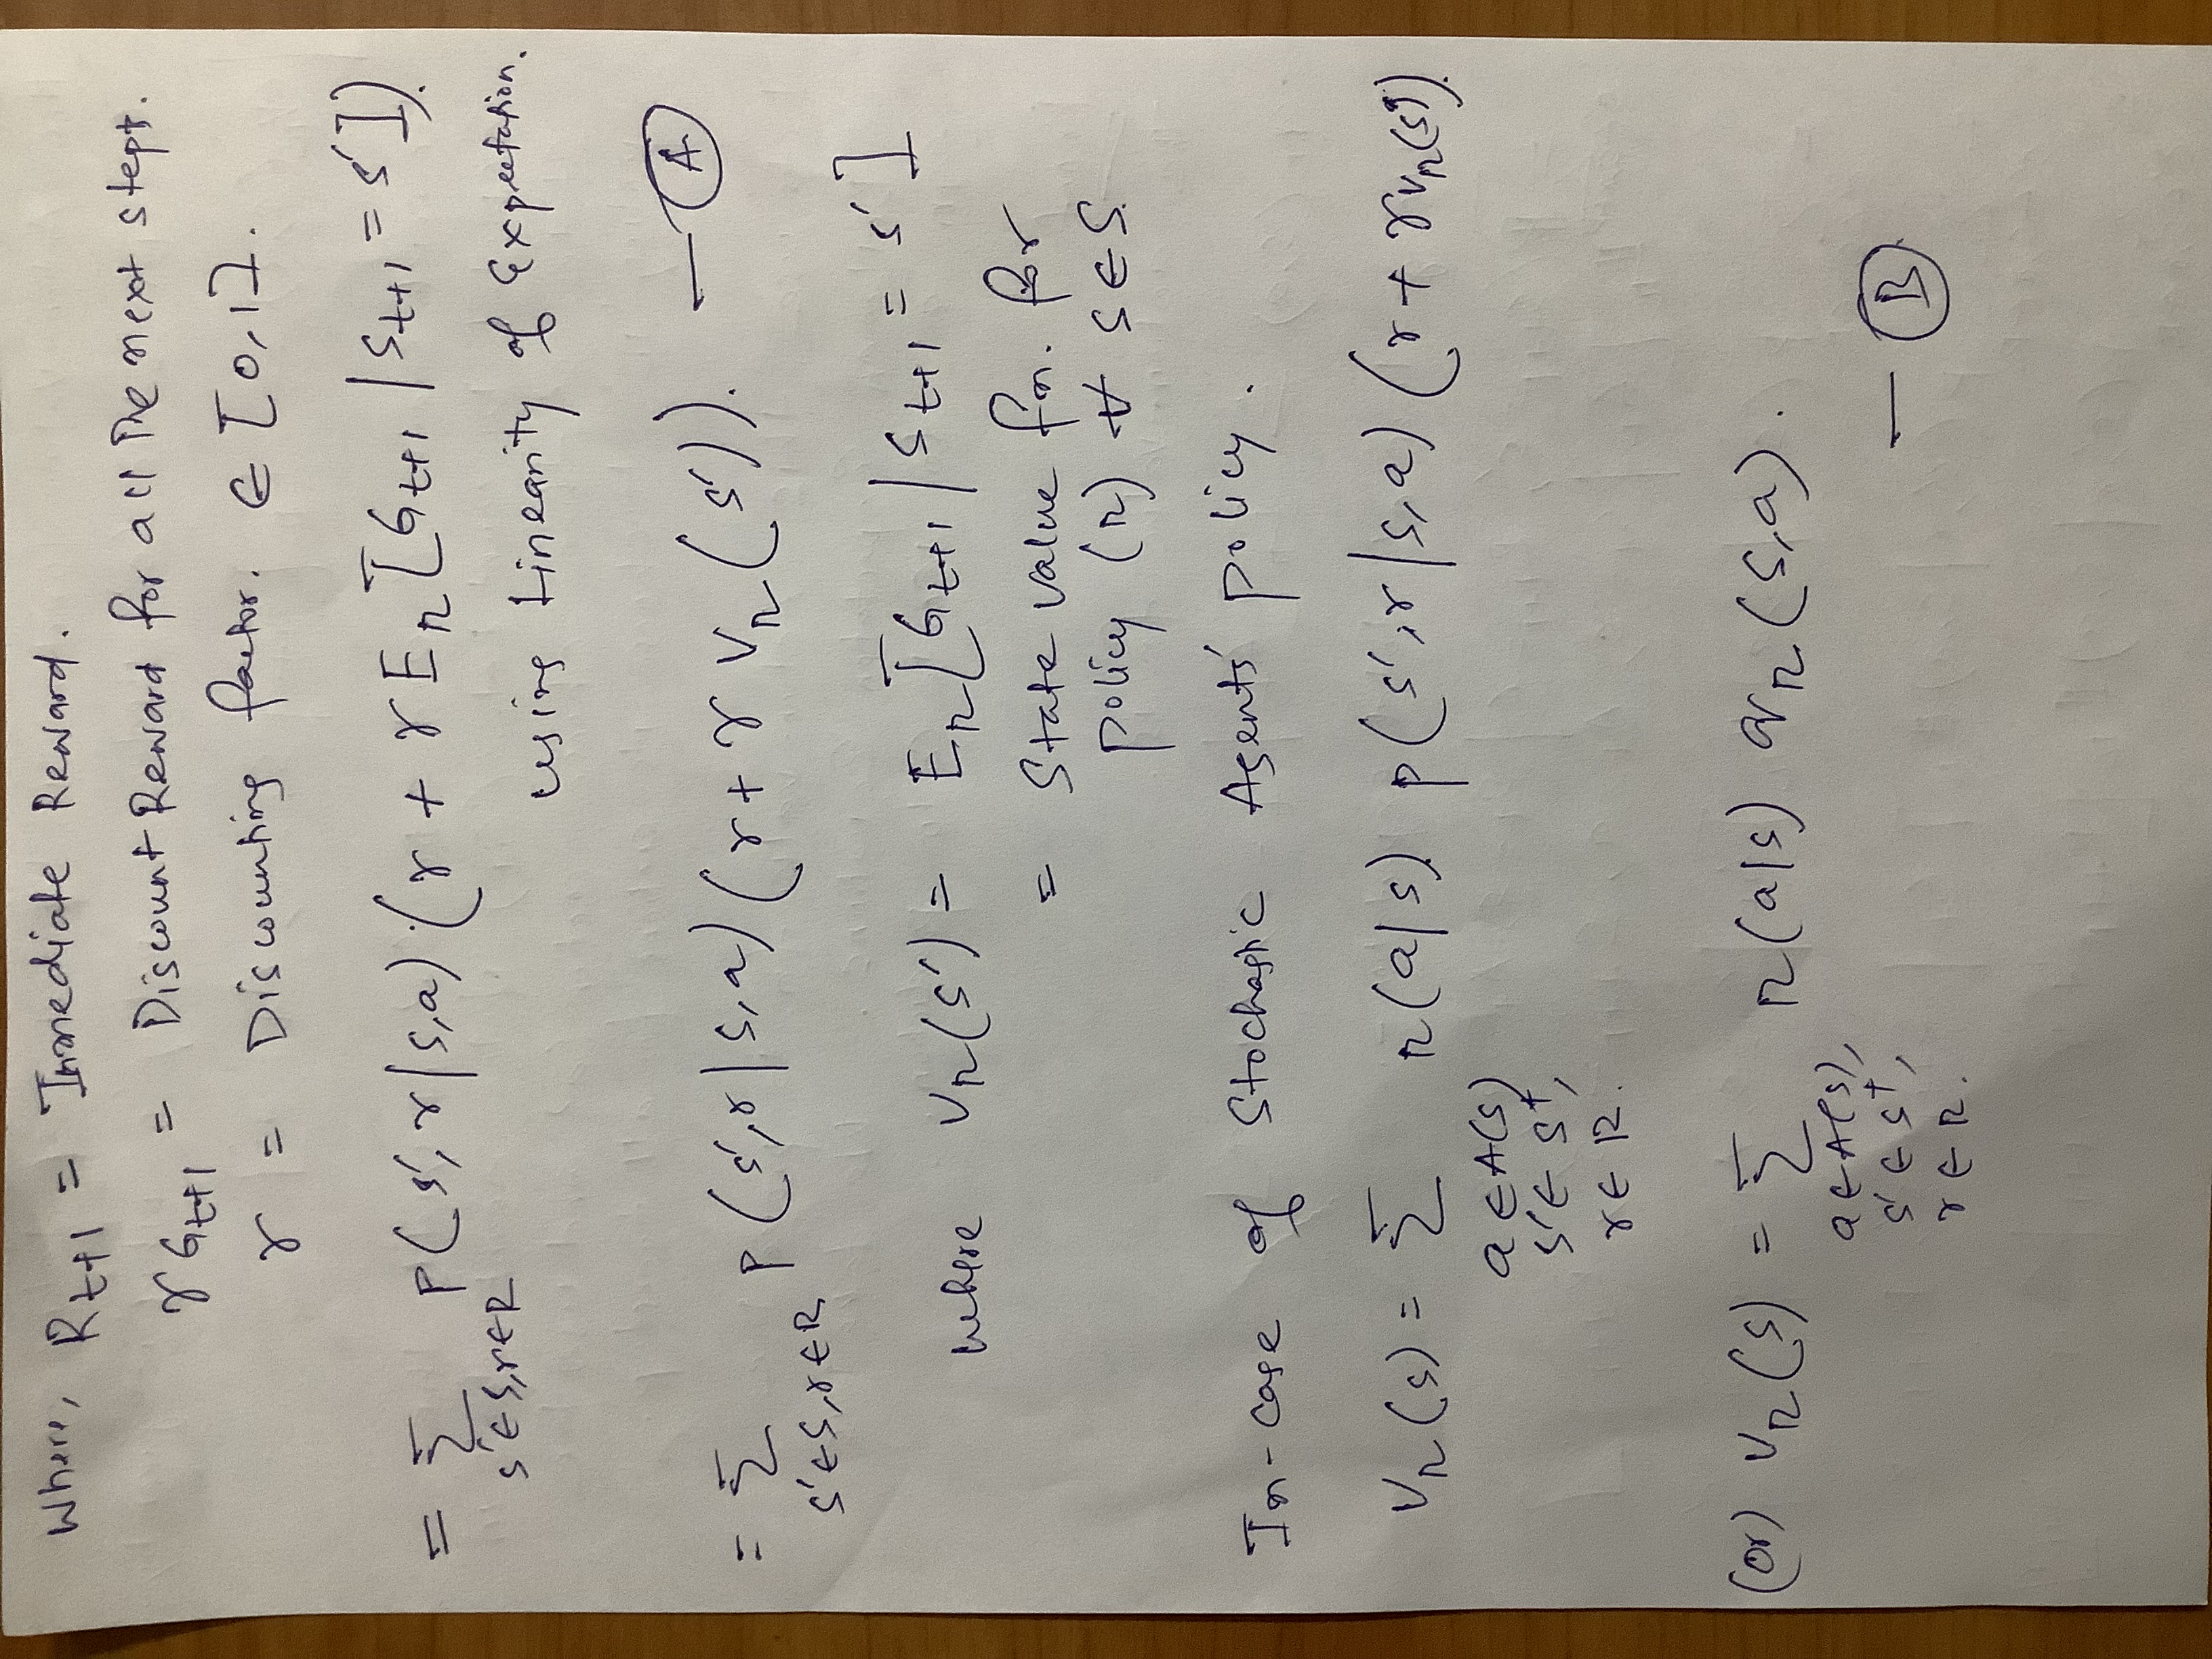 Where, R_{t+1} = Immediate Reward.
γ G_{t+1} = Discount Reward for all the next steps.
γ = Discounting factor. ∈ [0,1].
= Σ p(s',r|s,a) (r + γ E_π [G_{t+1} | S_{t+1} = s']).
s'∈S,r∈R
using Linearity of Expectation.
= Σ p(s',r|s,a) (r + γ V_π(s')). — (A)
s'∈S,r∈R
where V_π(s') = E_π [G_{t+1} | S_{t+1} = s']
= State value fn. for
policy (π) ∀ s∈S.
In-case of Stochastic Agents' policy.
V_π(s) = Σ π(a|s) p(s',r|s,a) (r + γ V_π(s')).
a∈A(s)
s'∈ S⁺,
r∈ R.
(or) V_π(s) = Σ π(a|s) q_π(s,a).
a∈A(s),
s'∈ S⁺,
r∈ R.
— (B)